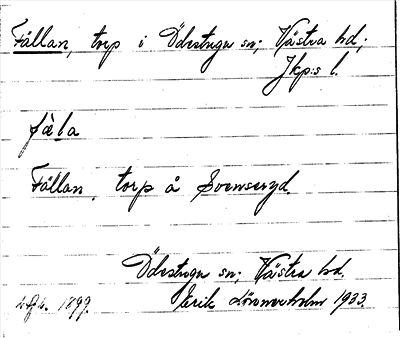 Fållan, torp i Ödestugu sn; Västra hd;
Jkp:s l.
fåla
Fållan, torp å Svenseryd.
Ödestugu sn; Västra hd.
1899. Erik Lönnerholm 1933.